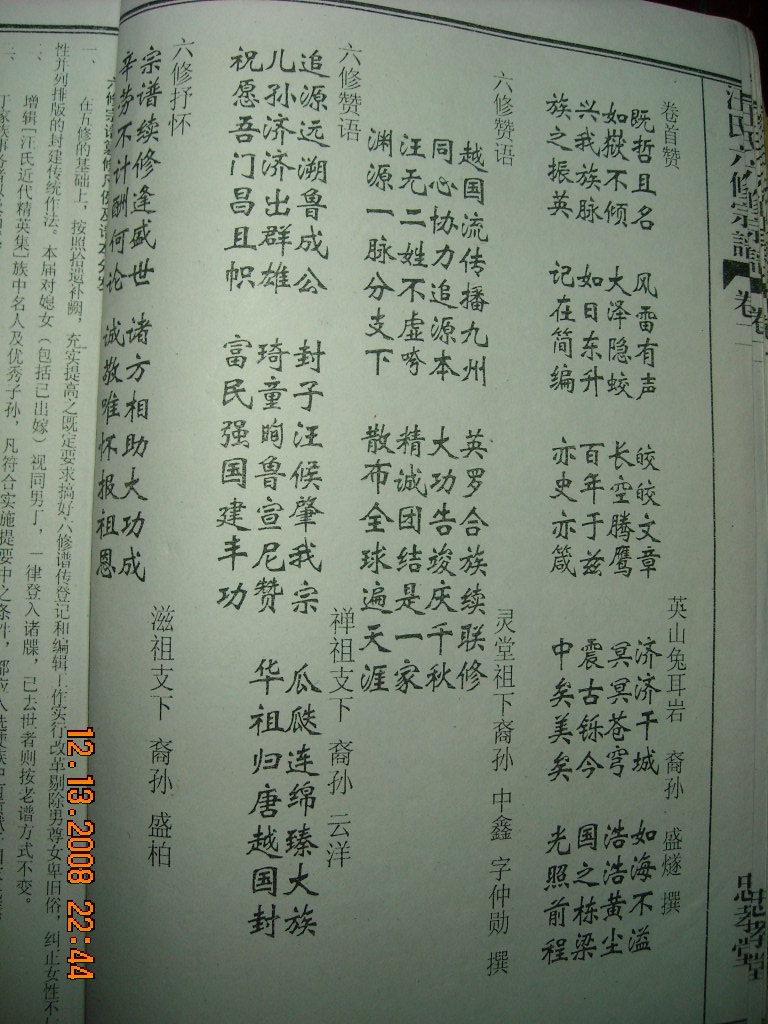 汪氏六修宗譜 卷二 忠孝堂
卷首赞 英山兔耳岩 裔孙 盛燧 撰
既哲且名 风雷有声 皎皎文章 济济干城 如海不溢
如獄不倾 大泽隐蛟 长空腾鹰 冥冥苍穹 浩浩黄尘
兴我族脉 如日东升 百年于兹 震古铄今 国之栋梁
族之振英 记在简编 亦史亦箴 中矣美矣 光照前程
六修赞语 灵堂祖下裔孙 中鑫 字仲勋 撰
越国流传播九州 英罗合族续联修
同心协力追源本 大功告竣庆千秋
汪无二姓不虚夸 精诚团结是一家
渊源一脉分支下 散布全球遍天涯
六修赞语 禅祖支下 裔孙 云洋
追源远溯鲁成公 封子汪候肇我宗 瓜瓞连绵臻大族
儿孙济济出群雄 琦童眴鲁宣尼赞 华祖归唐越国封
祝愿吾门昌且帜 富民强国建丰功
六修抒怀 滋祖支下 裔孙 盛柏
宗谱续修逢盛世 诸方相助大功成
辛劳不计酬何论 诚敬唯怀报祖恩
六修宗谱纂修凡例及谱本分
一、在五修的基础上，按照拾遗补阙，充实提高之既定要求搞好六修谱传登记和编辑工作实行改革剔除男尊女卑旧俗，纠止女性不
性并列排版的封建传统作法。本届对媳女（包括已出嫁）视同男丁，一律登入诸牒，已去世者则按老谱方式不变。
增辑［汪氏近代精英集］族中名人及优秀子孙，凡符合实施提要中之条件，都应入选
12.13.2008 22:44